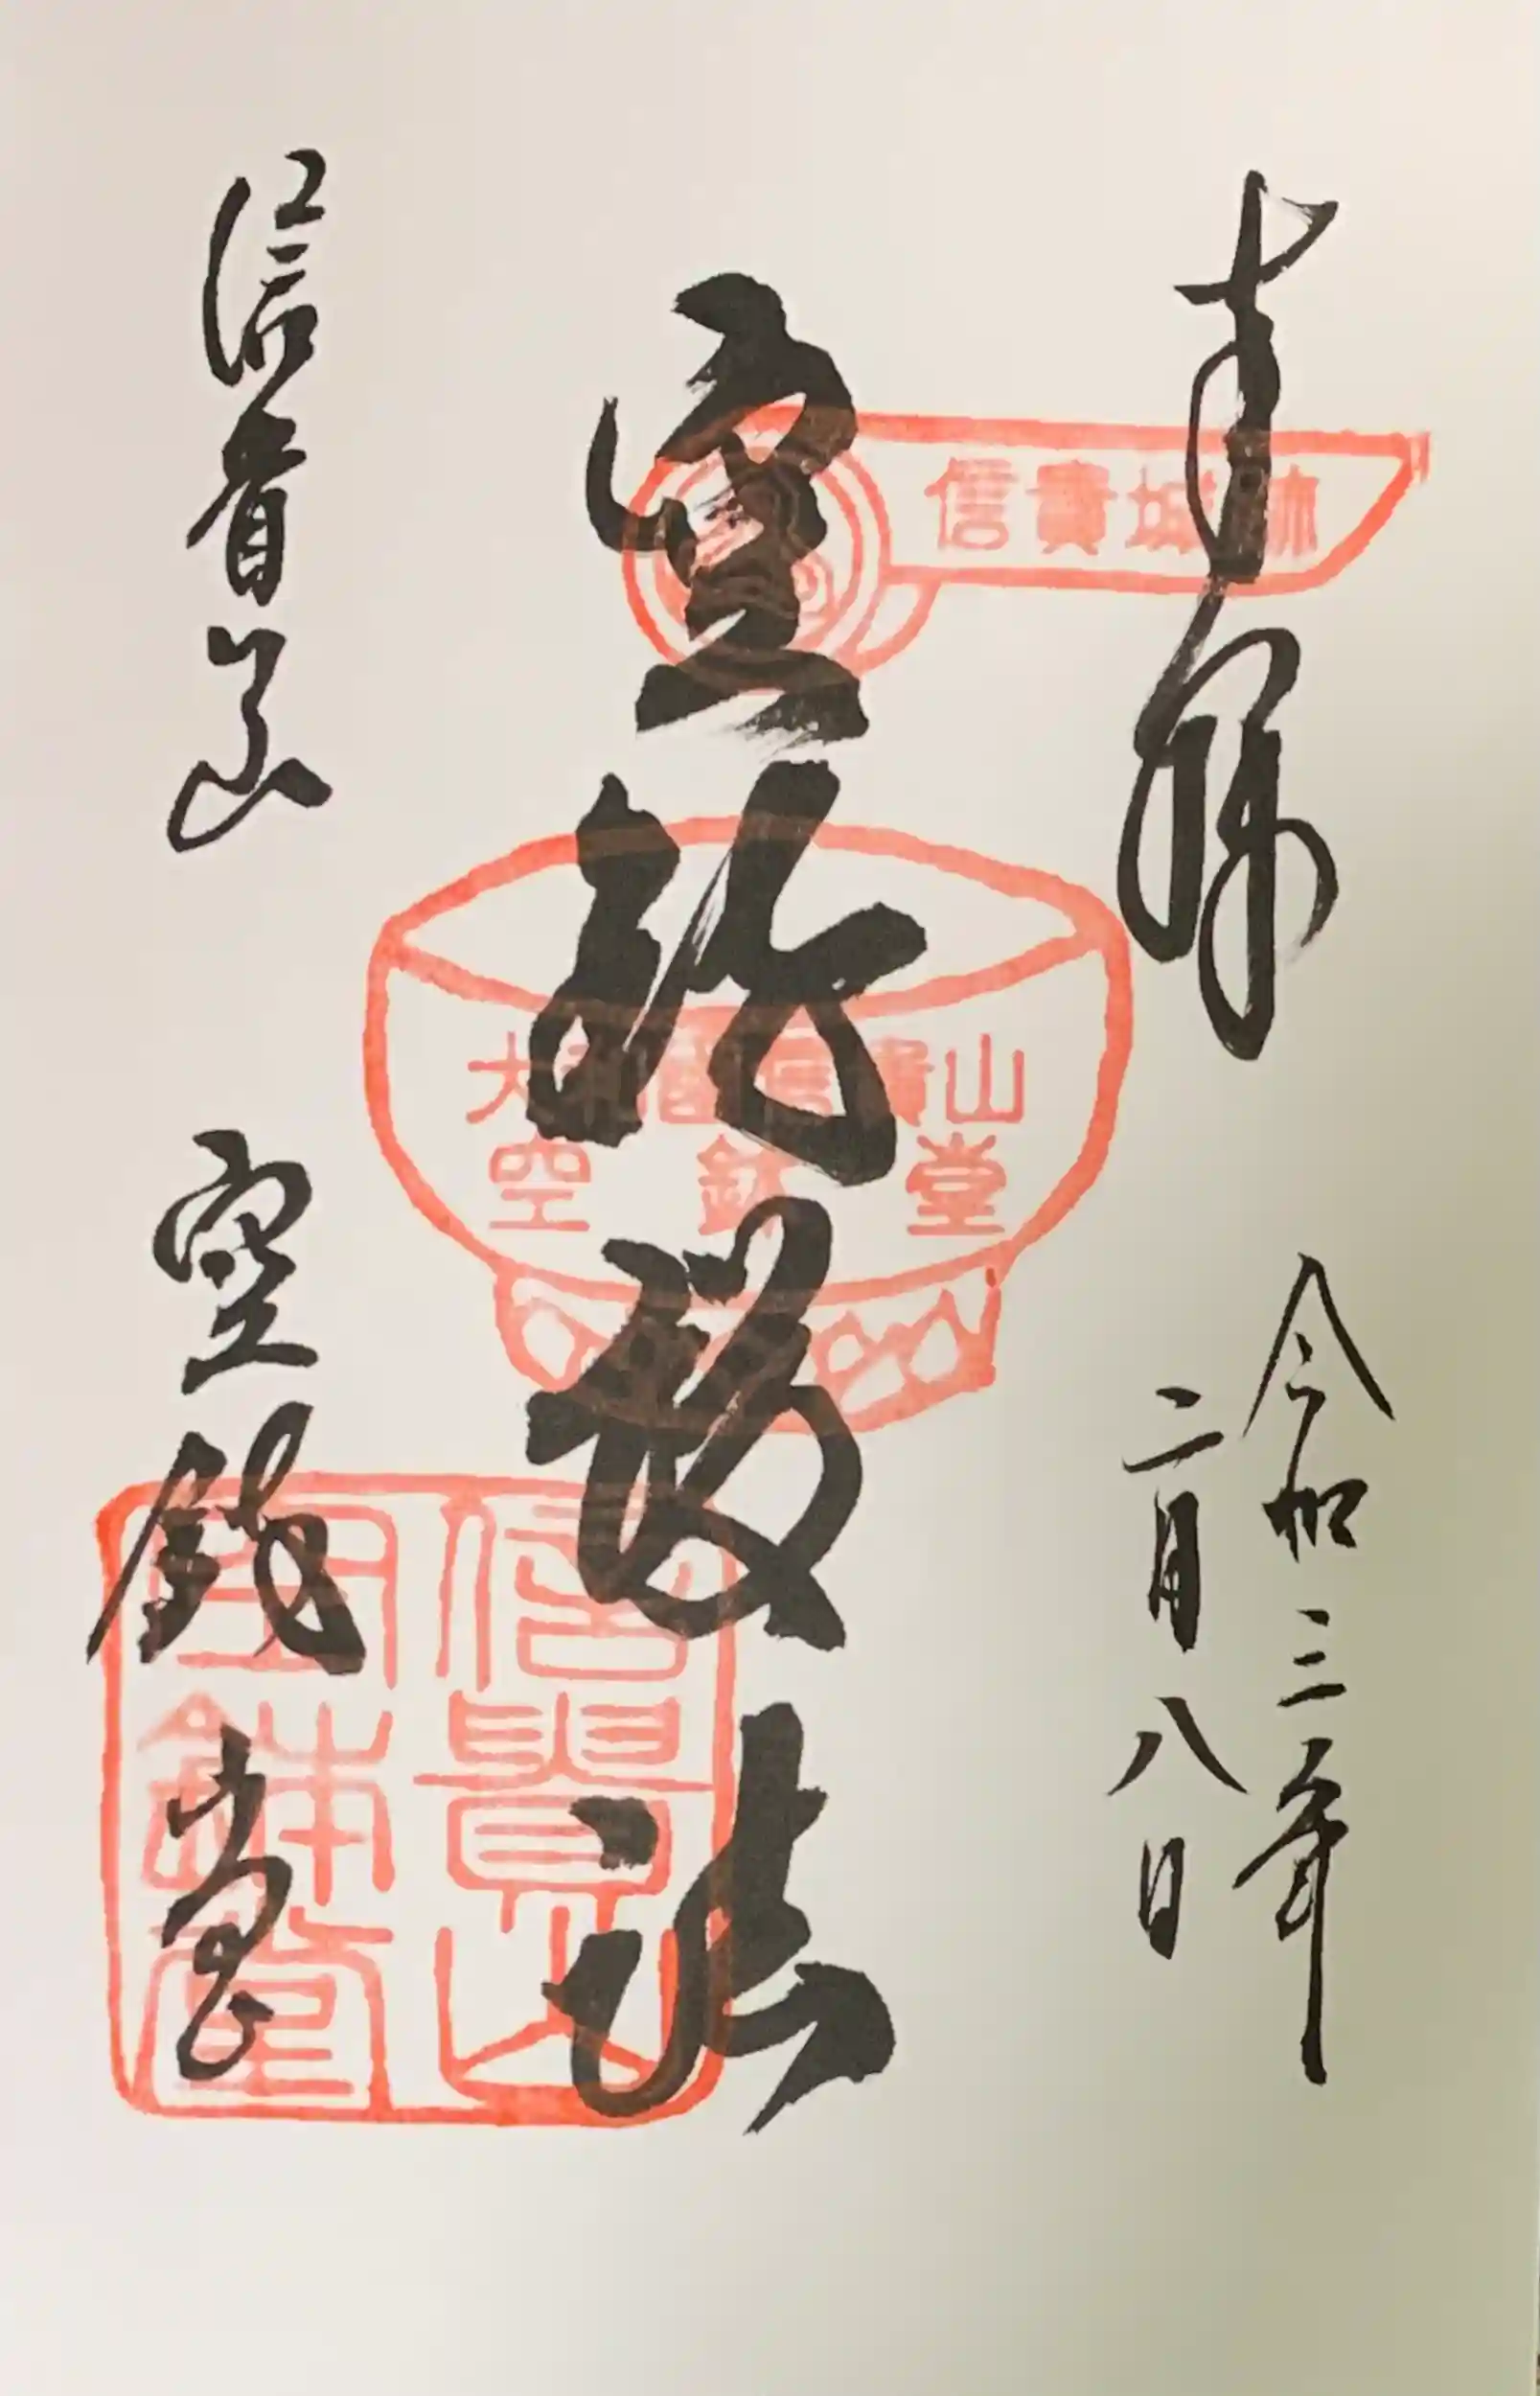 奉拝
令和三年
二月八日
信貴城跡
空鉢護法
大和國信貴山
空鉢堂
信貴山 空鉢堂
信貴山
空鉢堂